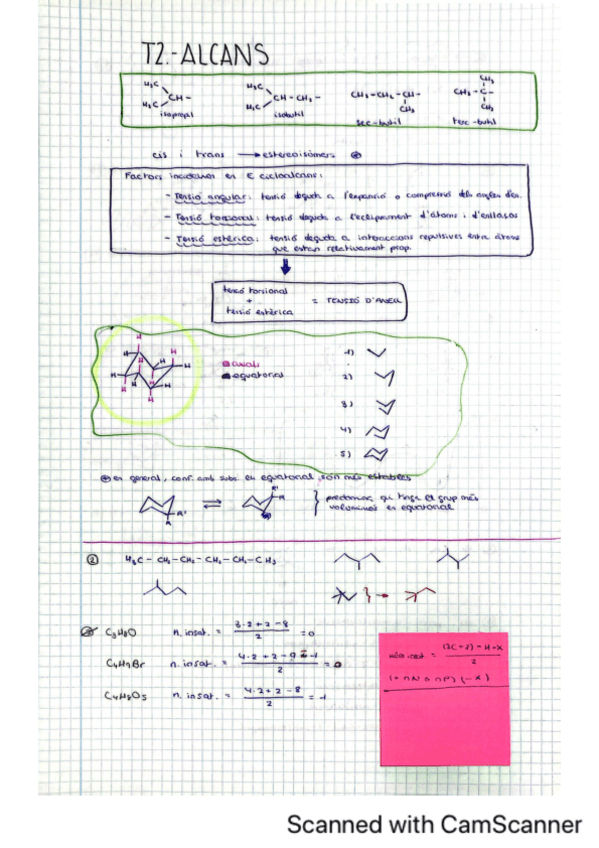 T2.-ALCANS
H₃C
H₃C CH-
isopropil
H₃C
H₃C CH-CH₂-
isobutil
CH₃-CH₂-CH-
CH₃
sec-butil
CH₃
CH₃-C-
CH₃
terc-butil
cis i trans → estereoisòmers
Factors incideixen en E cicloalcans:
- Tensió angular: tensió deguda a l'expansió o compressió dels angles d'en.
- Tensió torsional: tensió deguda a l'eclipsament d'àtoms i d'enllaços
- Tensió estèrica: tensió deguda a interaccions repulsives entre àtoms
que estan relativament prop.
tensió torsional
+
tensió estèrica
= TENSIÓ D'ANELL
H H H H H H H H H H H H
axials
equatorial
1)
2)
3)
4)
5)
en general, conf. amb subs. en equatorial, són més estables
R'
R
⇌
R'
R
} predomina, qu tinga el grup més
voluminós en equatorial
② H₃C-CH₂-CH₂-CH₂-CH₂-CH₃
} →
C₃H₈O n. insat. = 3·2+2-8 / 2 = 0
C₄H₉Br n. insat. = 4·2+2-9-1 / 2 = 0
C₄H₈O₅ n. insat. = 4·2+2-8 / 2 = 1